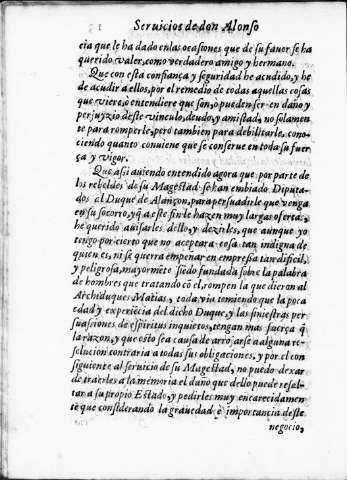 Seruicios de don Alonso
cia que le ha dado en las ocasiones que de su fauor se ha
querido valer, como verdadero amigo y hermano.
Que con esta confiança y seguridad he acudido, y he
de acudir a ellos, por el remedio de todas aquellas cosas
que viere, ò entendiere que son, ò pueden ser en daño y
perjuyzio deste vinculo, deudo, y amistad, no solamen
te para romperle, pero tambien para debilitarle, cono-
ciendo quanto conuiene que se conserue en toda su fuer
ça y vigor.
Que assi auiendo entendido agora que por parte de
los rebeldes de su Magestad se han embiado Diputa-
dos al Duque de Alançon, para persuadirle que venga
en su socorro, y q̃ a este fin le hazen muy largas ofertas,
he querido auisarles dello, y dezirles, que aunque yo
tengo por cierto que no aceptara cosa tan indigna de
quien es, ni se querra empenar en empresa tan dificil,
y peligrosa, mayormẽte siẽdo fundada sobre la palabra
de hombres que tratando cõ el, rompen la que dieron al
Archiduques Matias, toda via temiendo que la poca
edad y experiẽcia del dicho Duque, y las siniestras per
suasiones de espiritus inquietos, tengan mas fuerça q̃
la razon, y que esto sea causa de arrojarse a alguna re-
solucion contraria a todas sus obligaciones, y por el con
siguiente al seruicio de su Magestad, no puedo dexar
de traerles a la memoria el daño que dello puede resul-
tar a su propio Estado, y pedirles muy encarecidamen
te que considerando la grauedad è importancia deste
negocio,